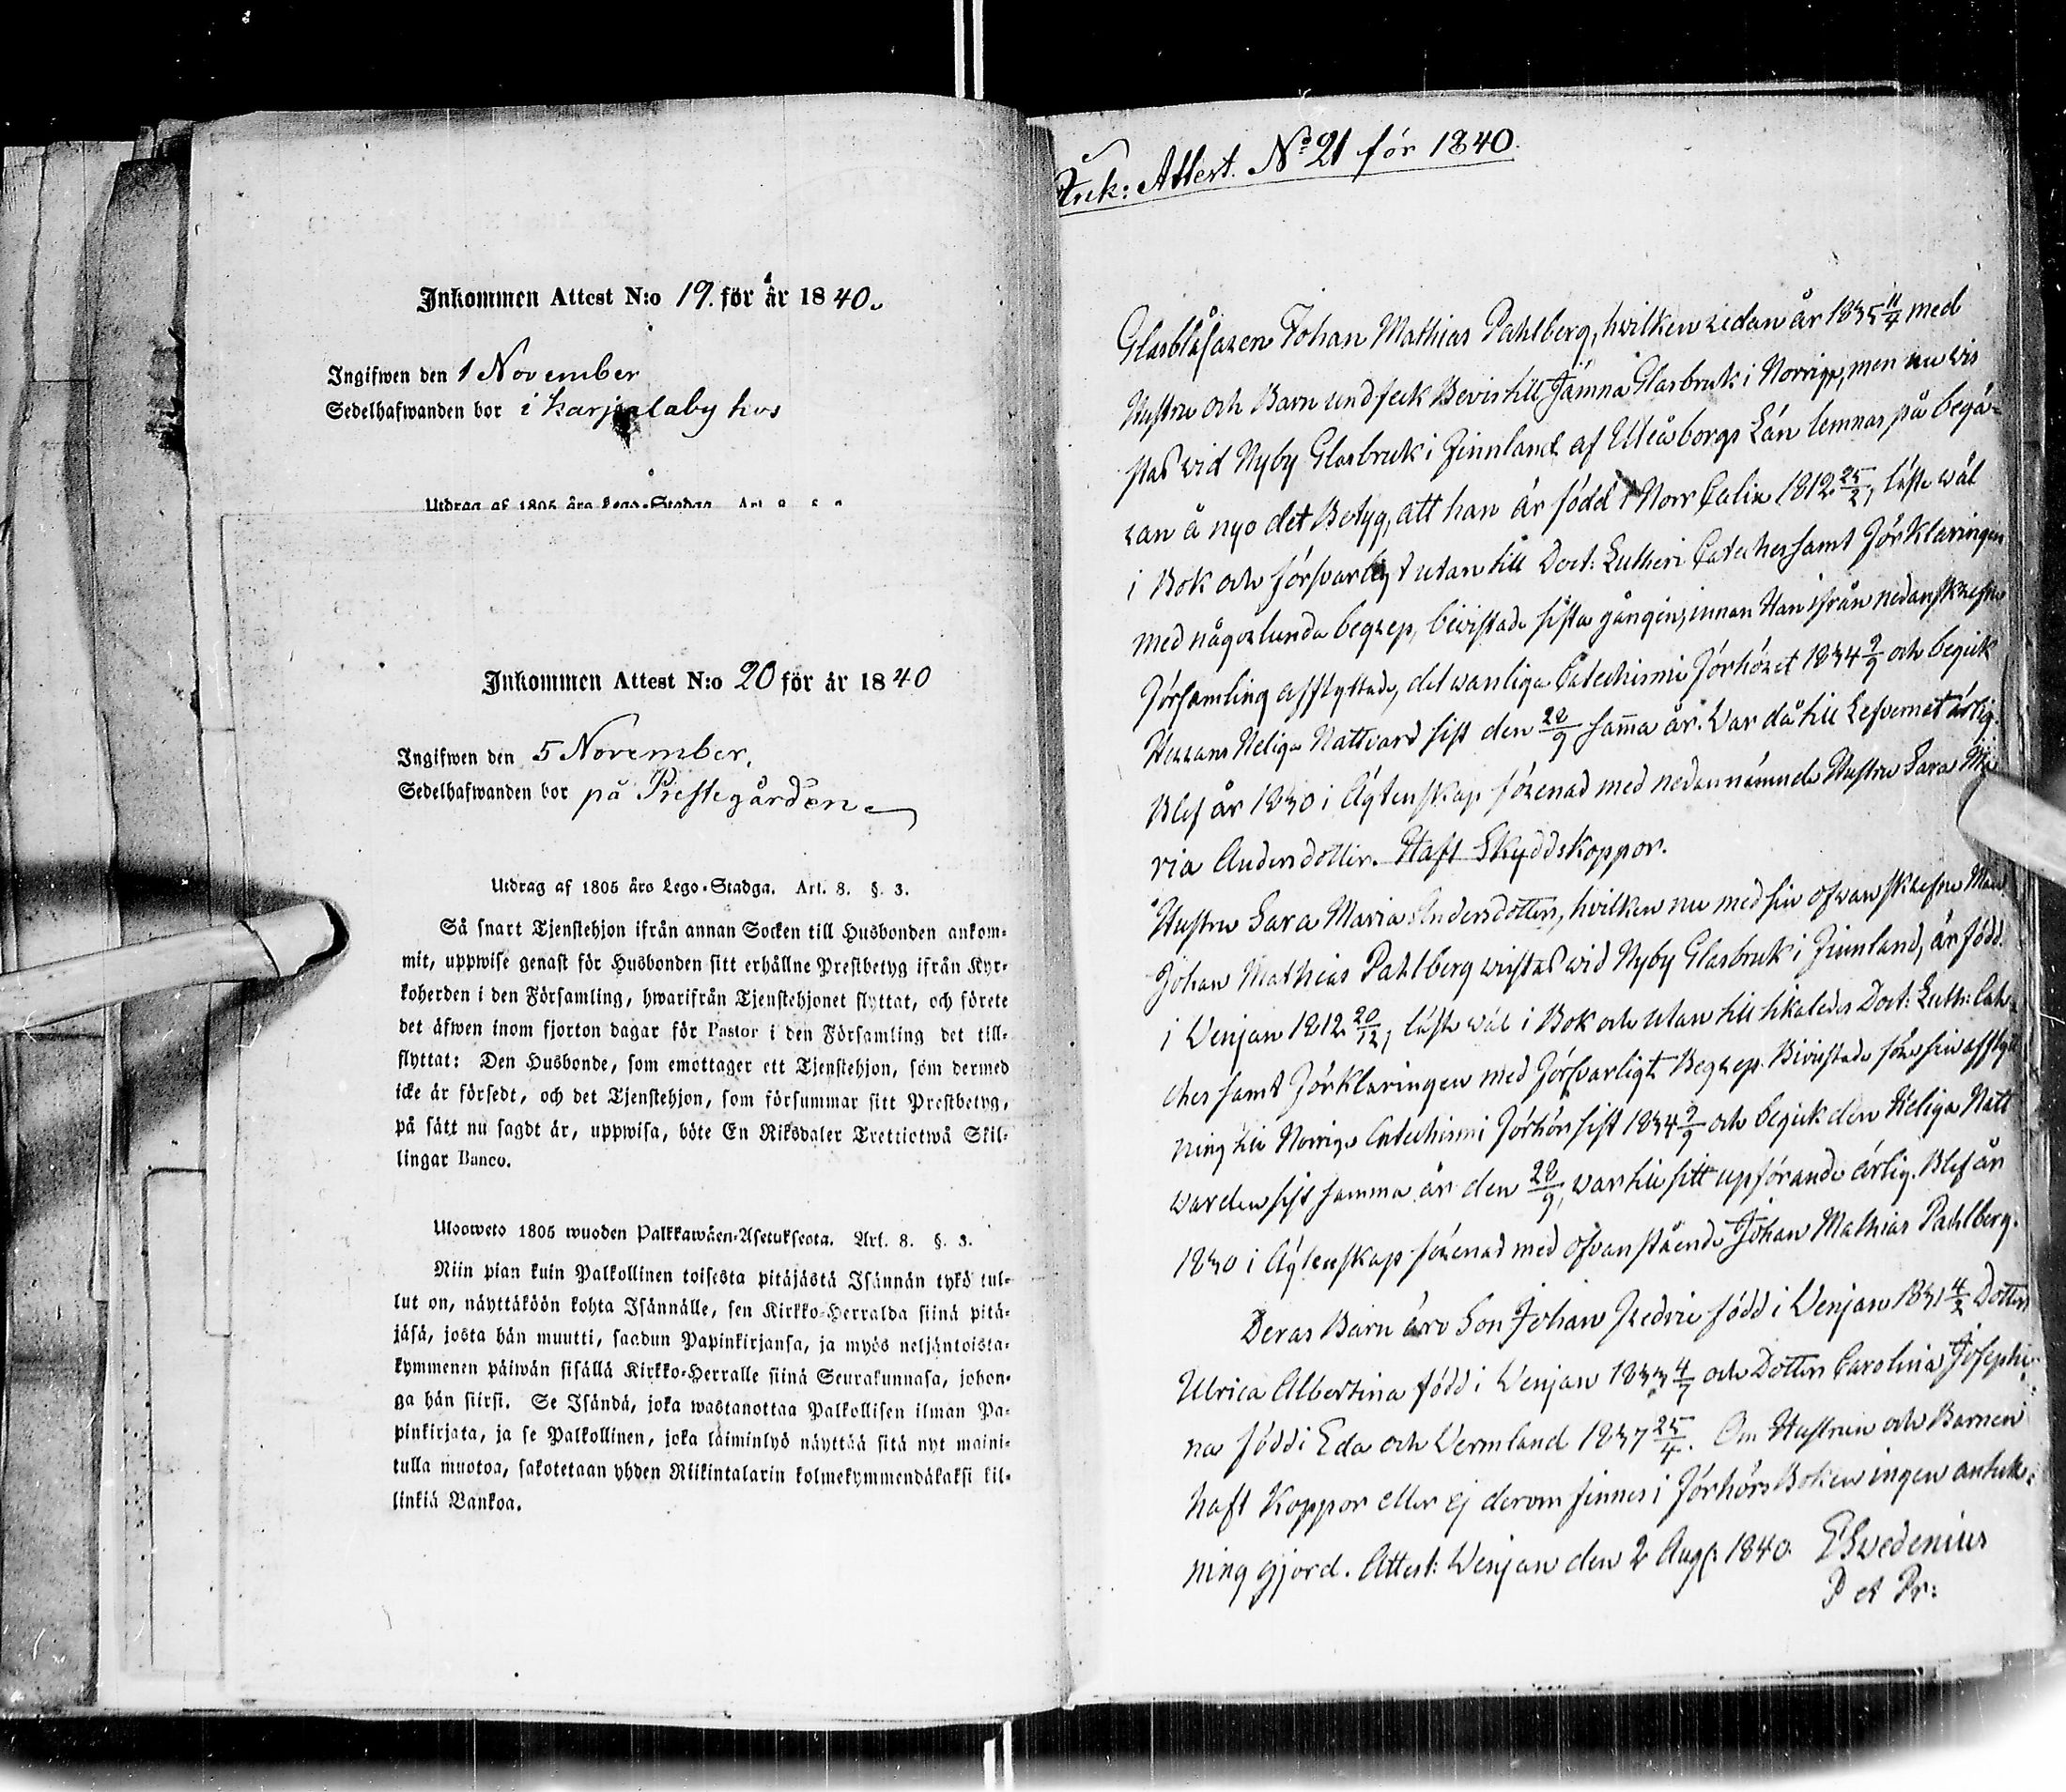 Inkommen Attest N:o 19. för år 1840.
Ingifwen den 1 November
Sedelhafwanden bor i karjalaby hos
Utdrag af 1805 års Lego-Stadga. Art. 8. §. 3.
Inkommen Attest N:o 20 för år 1840
Ingifwen den 5 November.
Sedelhafwanden bor på Prestegården
Utdrag af 1805 års Lego-Stadga. Art. 8. §. 3.
Så snart Tjenstehjon ifrån annan Socken till Husbonden ankom-
mit, uppwise genast för Husbonden sitt erhållne Prestbetyg ifrån Kyr-
koherden i den Församling, hwarifrån Tjenstehjonet flyttat, och förete
det äfwen inom fjorton dagar för Pastor i den Församling det till-
flyttat: Den Husbonde, som emottager ett Tjenstehjon, som dermed
icke är försedt, och det Tjenstehjon, som försummar sitt Prestbetyg,
på sätt nu sagdt är, uppwisa, böte En Riksdaler Trettiotwå Skil-
lingar Banco.
Ulosweto 1805 wuoden Palkkawäen-Asetuksesta. Art. 8. §. 3.
Niin pian kuin Palkollinen toisesta pitäjästä Isännän tykö tul-
lut on, näyttäköön kohta Isännälle, sen Kirkko-Herralda siinä pitä-
jäsä, josta hän muutti, saadun Papinkirjansa, ja myös neljäntoista-
kymmenen päiwän sisällä Kirkko-Herralle siinä Seurakunnasa, johon-
ga hän siirsi. Se Isändä, joka wastanottaa Palkollisen ilman Pa-
pinkirjata, ja se Palkollinen, joka läiminlyö näyttää sitä nyt maini-
tulla muotoa, sakotetaan yhden Riikintalarin kolmekymmendäkaksi kil-
linkiä Bankoa.
Ink: Attest. No 21 för 1840.
Glasblåsaren Johan Mathias Pahlberg, hvilken redan år 1835 11/4 med
Hustru och Barn undfeck Bevis till Jämna Glasbruk i Norrige, men nu vis
stas vid Nyby Glasbruk i Finnland af Uleåborgs Län lemnas på begä-
ran å nyo det Betyg, att han är född i Norr 1812 25/2, läste wäl
i Bok och försvarligt utan till Doct: Lutheri Cateches samt Förklaringen
med någorlunda begrep, bevistade sista gången, innan Han ifrån nedanskrefne
Församling afflyttade, det wanliga Catechismi Förhöret 1834 2/9 och begick
Herrans Heliga Nattvard sist den 28/9 samma år. War då till Lefvernet ärlig.
Blef år 1830 i Ägtenskap förenad med nedannämnde Hustru Sara Ma
ria Andersdotter. Haft Skyddskoppor.
Hustru Sara Maria Andersdotter, hvilken nu med sin ofwanskrefne Man
Johan Mathias Pahlberg vistas wid Nyby Glasbruk i Finnland, är född
i Venjan 1812 20/12, läste wäl i Bok och utan till likaledes Doct: Luth: Cate-
ches samt Förklaringen med Försvarligt Begrep. Bivistade före sin afflytt
ning till Norrige Catechismi Förhör sist 1834 2/9 och begick den Heliga Natt
warden sist samma år den 28/9, war till sitt upförande ärlig. Blef år
1830 i Ägtenskap förenad med ofvanstående Johan Mathias Pahlberg.
Deras Barn äro Son Johan Fredric född i Venjan 1831 4/2 Dottren
Ulrica Albertina född i Venjan 1833 4/7 och Dottren Carolina Josephi-
na född i Eda och Vermland 1837 25/4. Om Hustrun och Barnen
haft Koppor eller ej derom finnes i Förhörs Boken ingen anteck-
ning gjord. Attest: Venjan den 2 Aug: 1840. Swedenius
P et Pr: